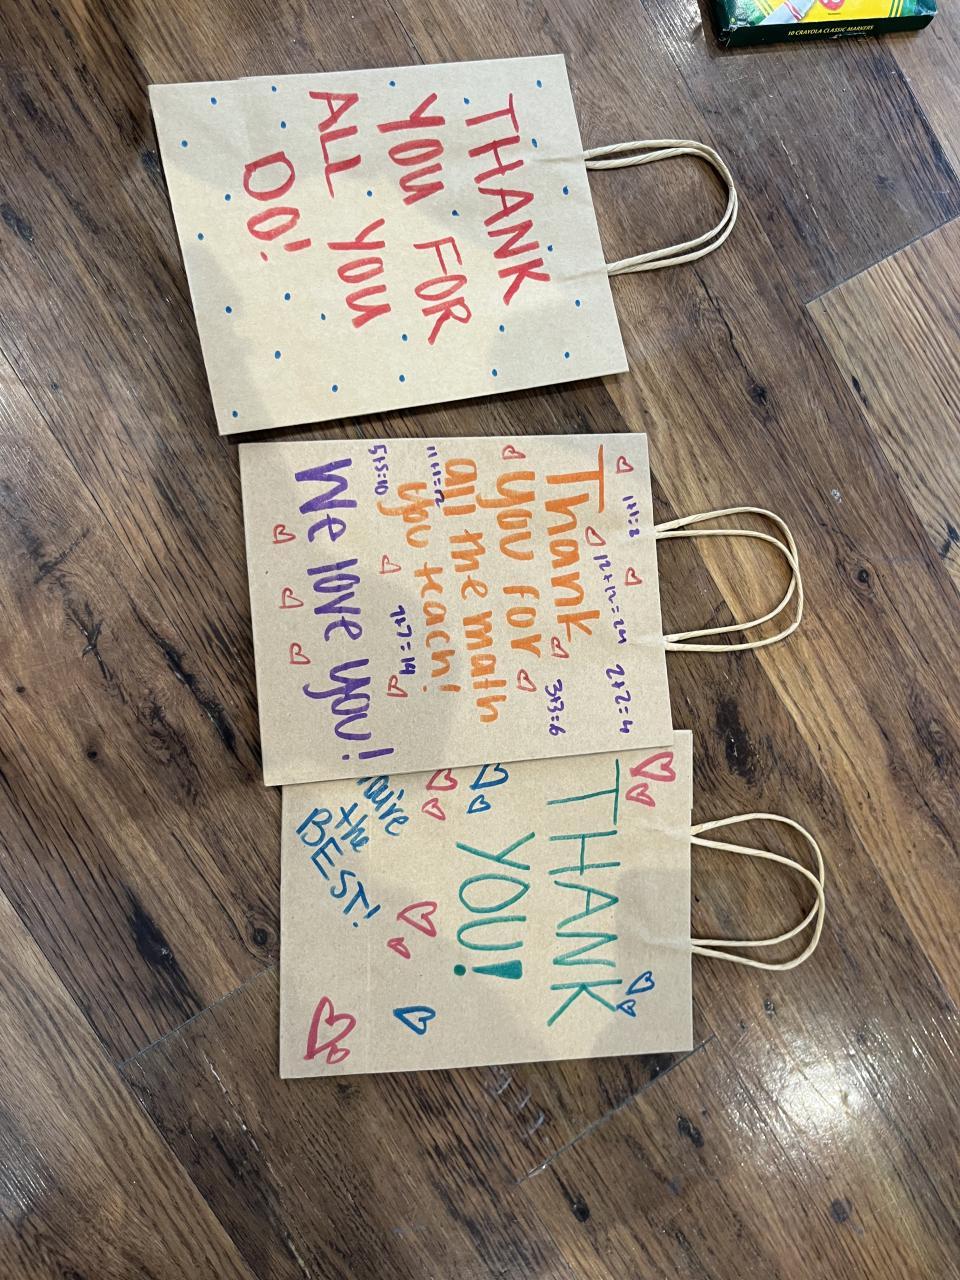 10 CRAYOLA CLASSIC MARKERS
THANK
YOU FOR
ALL YOU
DO!
1+1=2
12+12=24
2+2=4
Thank
3+3=6
you for
all the math
11+1=12
you teach!
7+7=14
5+5=10
We love you!
THANK
YOU!
the
BEST!